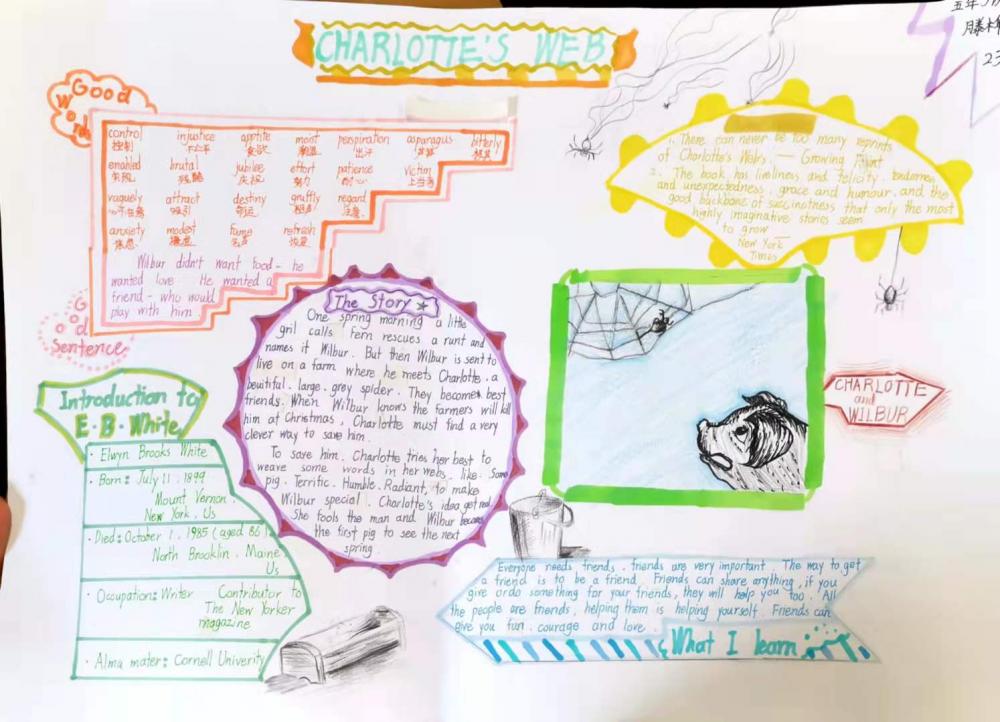 CHARLOTTE'S WEB
五年
滕
23
Good
Words
control injustice apptite moist perspiration asparagus bitterly
控制 不公平 食欲 潮湿 出汗 芦笋
enabled brutal jubilee effort patience victim
残酷 庆祝 努力 耐心 上当者
vaguely attract destiny gruffly regard
吸引 命运 粗声 注意
anxiety modest fame refresh
焦虑 谦虚 名声 恢复
Wilbur didn't want food - he
wanted love. He wanted a
friend - who would
play with him.
Good
Sentence
1. There can never be too many reprints
of Charlotte's Webs. — Growing Point
2. The book has liveliness and felicity, tenderness
and unexpectedness, grace and humour, and the
good backbone of succinctness that only the most
highly imaginative stories seem
to grow —
New York
Times
The Story
One spring morning a little
gril calls Fern rescues a runt and
names it Wilbur. But then Wilbur is sent to
live on a farm where he meets Charlotte, a
beuitiful, large, grey spider. They becomes best
friends. When Wilbur knows the farmers will kill
him at Christmas, Charlotte must find a very
clever way to save him.
To save him, Charlotte tries her best to
weave some words in her webs, like: Some
pig, Terrific, Humble, Radiant, to make
Wilbur special. Charlotte's idea get
She fools the man and Wilbur became
the first pig to see the next
spring.
CHARLOTTE
and
WILBUR
Introduction to
E·B·White
· Elwyn Brooks White
· Born: July 11, 1899
Mount Vernon,
New York, Us
· Died: October 1, 1985 (aged 86)
North Brooklin, Maine,
Us
· Occupation: Writer Contributor to
The New Yorker
magazine
· Alma mater: Cornell Univerity
Everyone needs friends, friends are very important. The way to get
a friend is to be a friend. Friends can share anything, if you
give or do something for your friends, they will help you too. All
the people are friends, helping them is helping yourself. Friends can
give you fun, courage and love.
What I learn